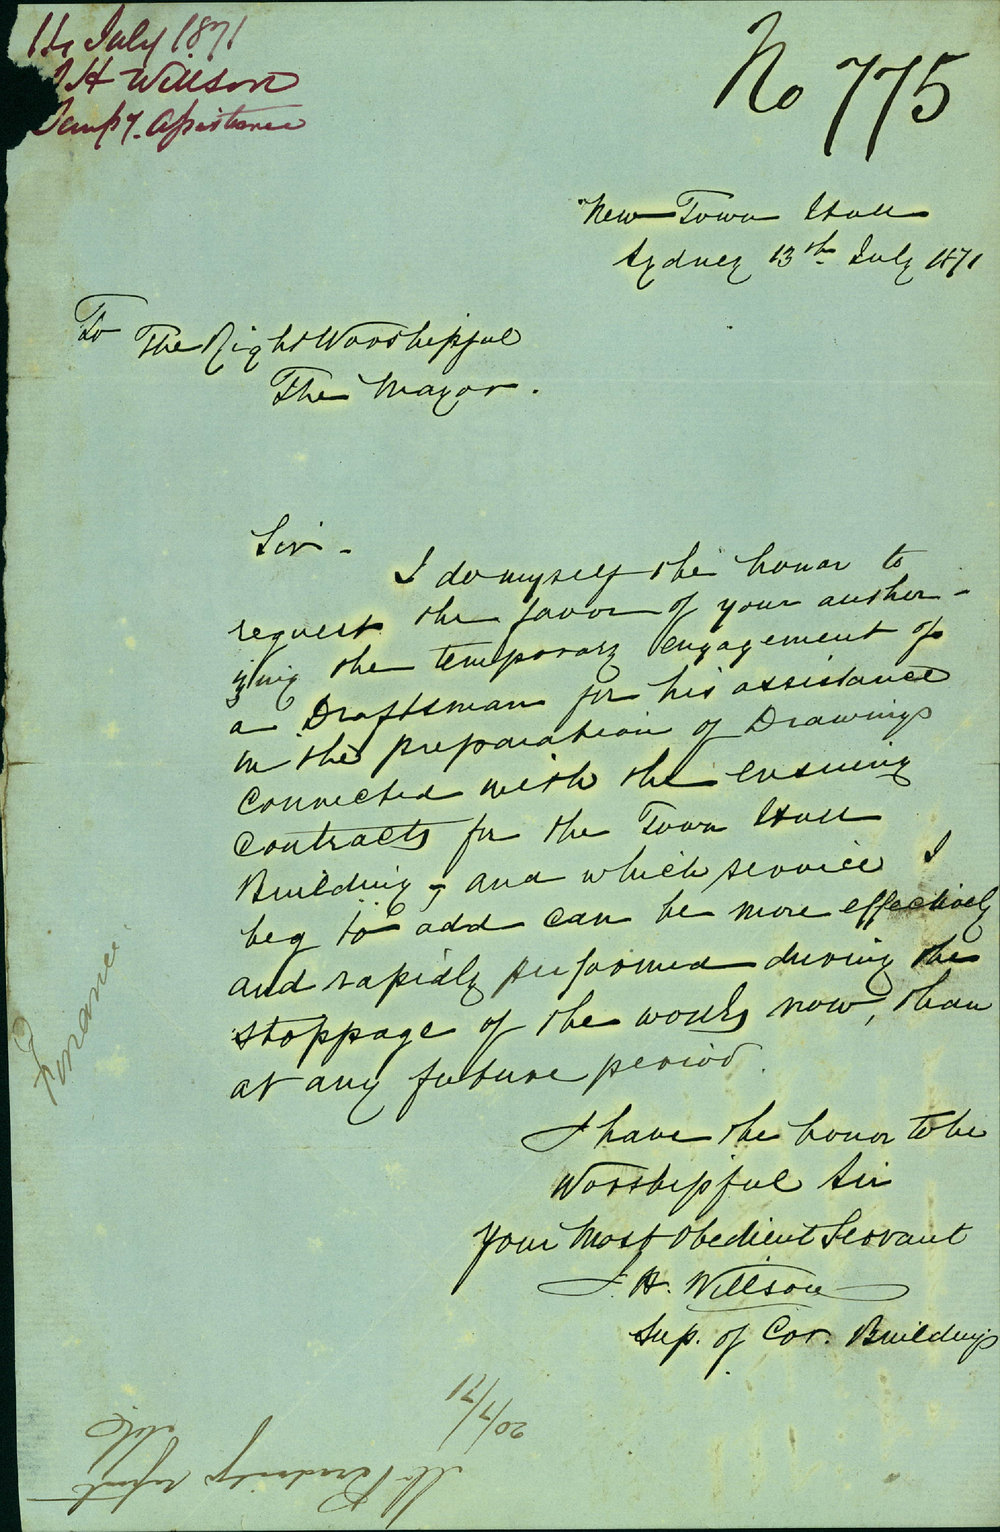 14 July 1871
J H Willson
Tempy. Assistance
No 775
New Town Hall
Sydney 13th July 1871
To The Right Worshipful
The Mayor.
Sir -
I do myself the honor to
request the favor of your author-
izing the temporary engagement of
a Draftsman for his assistance
in the preparation of Drawings
connected with the ensuing
contracts for the Town Hall
Building, and which service I
beg to add can be more effectively
and rapidly performed during the
stoppage of the works now, than
at any future period.
I have the honor to be
Worshipful Sir
Your Most Obedient Servant
J. H. Willson
Sup. of Cor. Buildings
Finance.
20/7/71